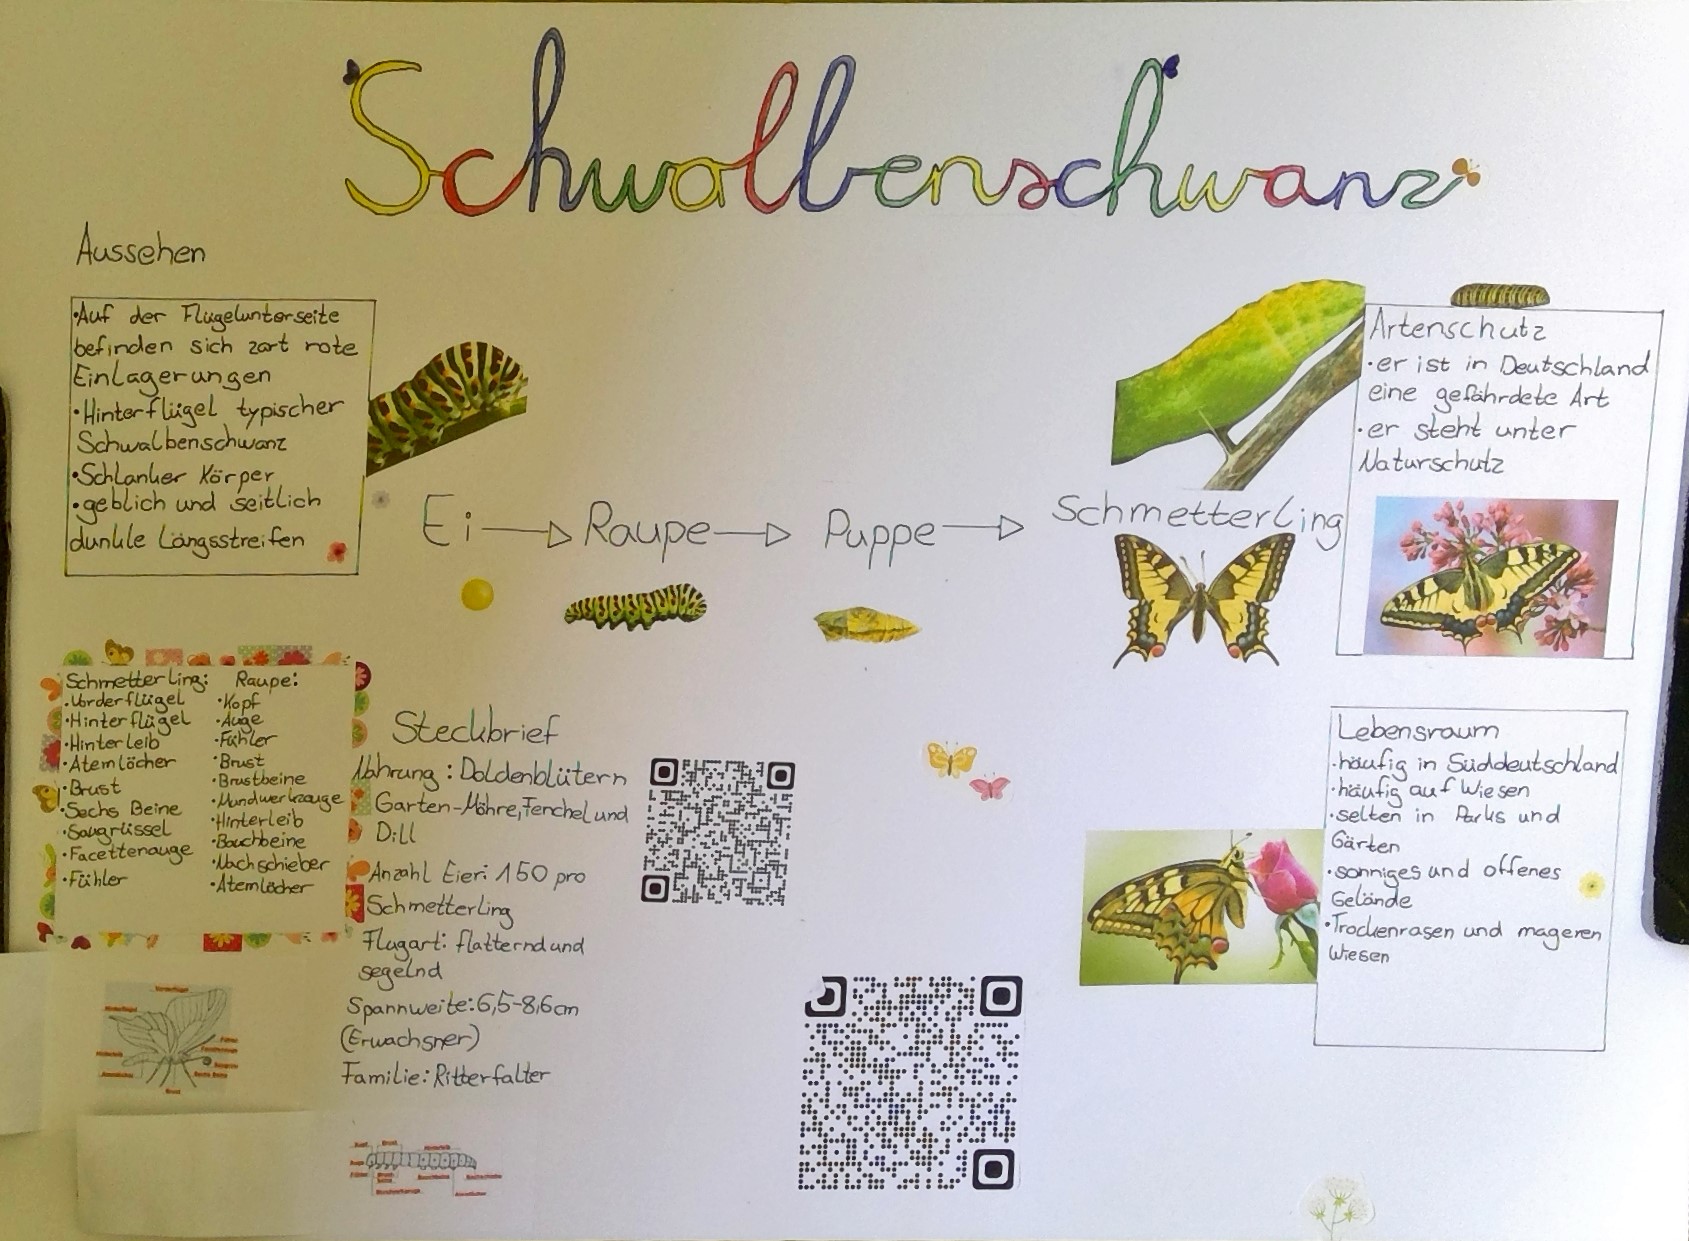 Schwalbenschwanz
Aussehen
•Auf der Flügelunterseite
befinden sich zart rote
Einlagerungen
•Hinterflügel typischer
Schwalbenschwanz
•Schlanker Körper
•geblich und seitlich
dunkle Längsstreifen
Ei → Raupe → Puppe → Schmetterling
Artenschutz
•er ist in Deutschland
eine gefährdete Art
•er steht unter
Naturschutz
Schmetterling:
•Vorderflügel
•Hinterflügel
•Hinterleib
•Atemlöcher
•Brust
•Sechs Beine
•Saugrüssel
•Facettenauge
•Fühler
Raupe:
•Kopf
•Auge
•Fühler
•Brust
•Brustbeine
•Mundwerkzeuge
•Hinterleib
•Bauchbeine
•Nachschieber
•Atemlöcher
Steckbrief
Nahrung: Doldenblütern
Garten-Möhre, Fenchel und
Dill
Anzahl Eier: 150 pro
Schmetterling
Flugart: flatternd und
segelnd
Spannweite: 6,5-8,6cm
(Erwachsner)
Familie: Ritterfalter
Lebensraum
•häufig in Süddeutschland
•häufig auf Wiesen
•selten in Parks und
Gärten
•sonniges und offenes
Gelände
•Trockenrasen und mageren
Wiesen